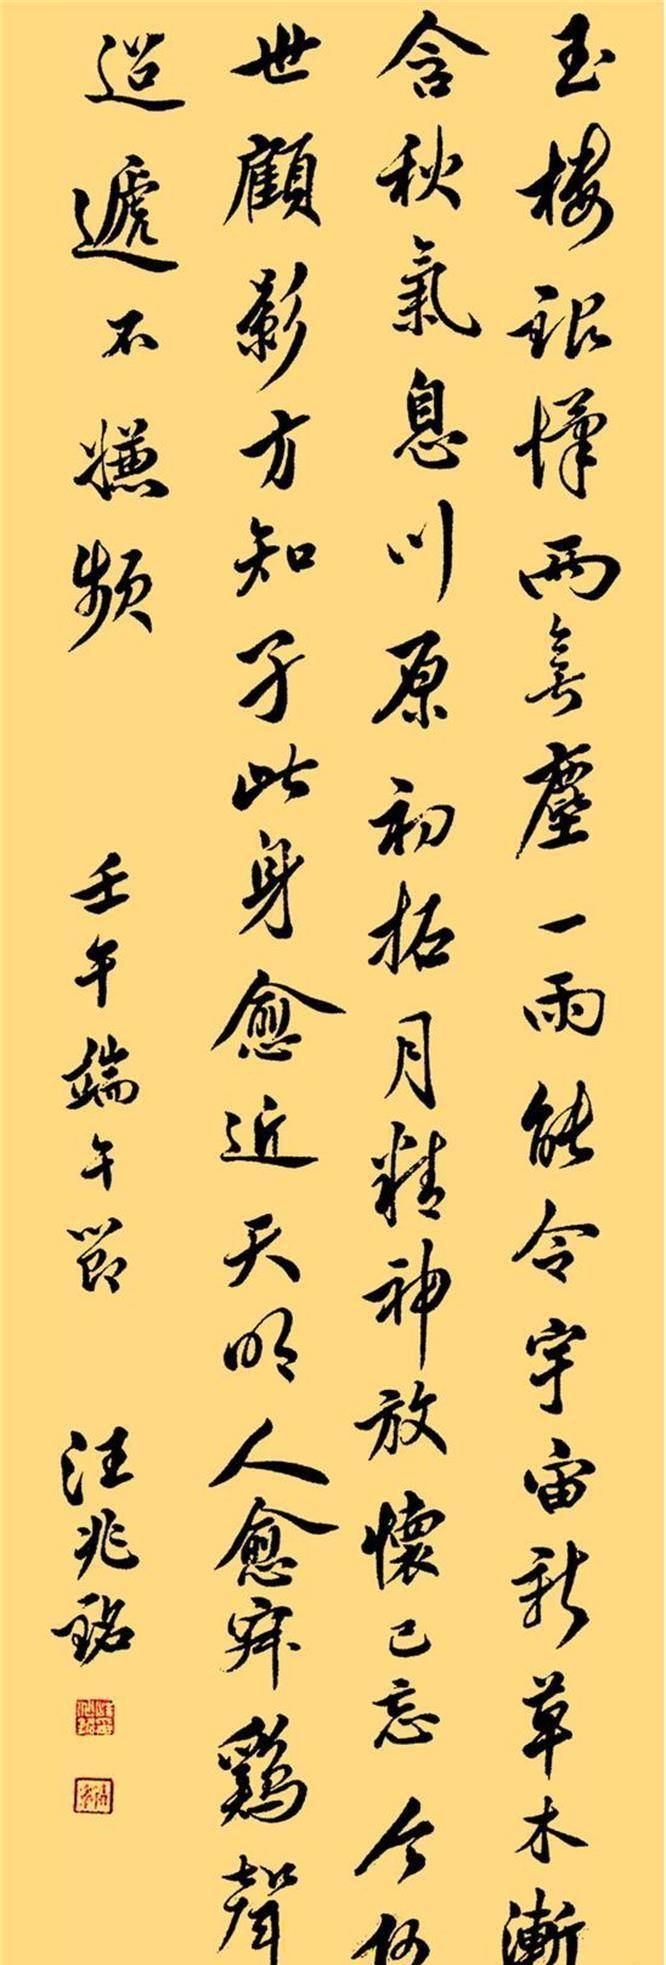 玉樓銀漢兩無塵一雨能令宇宙新草木漸
含秋氣息川原初拓月精神放懷已忘今何
世顧影方知孑此身愈近天明人愈寐鷄聲
迢遞不嫌頻
壬午端午節
汪兆銘